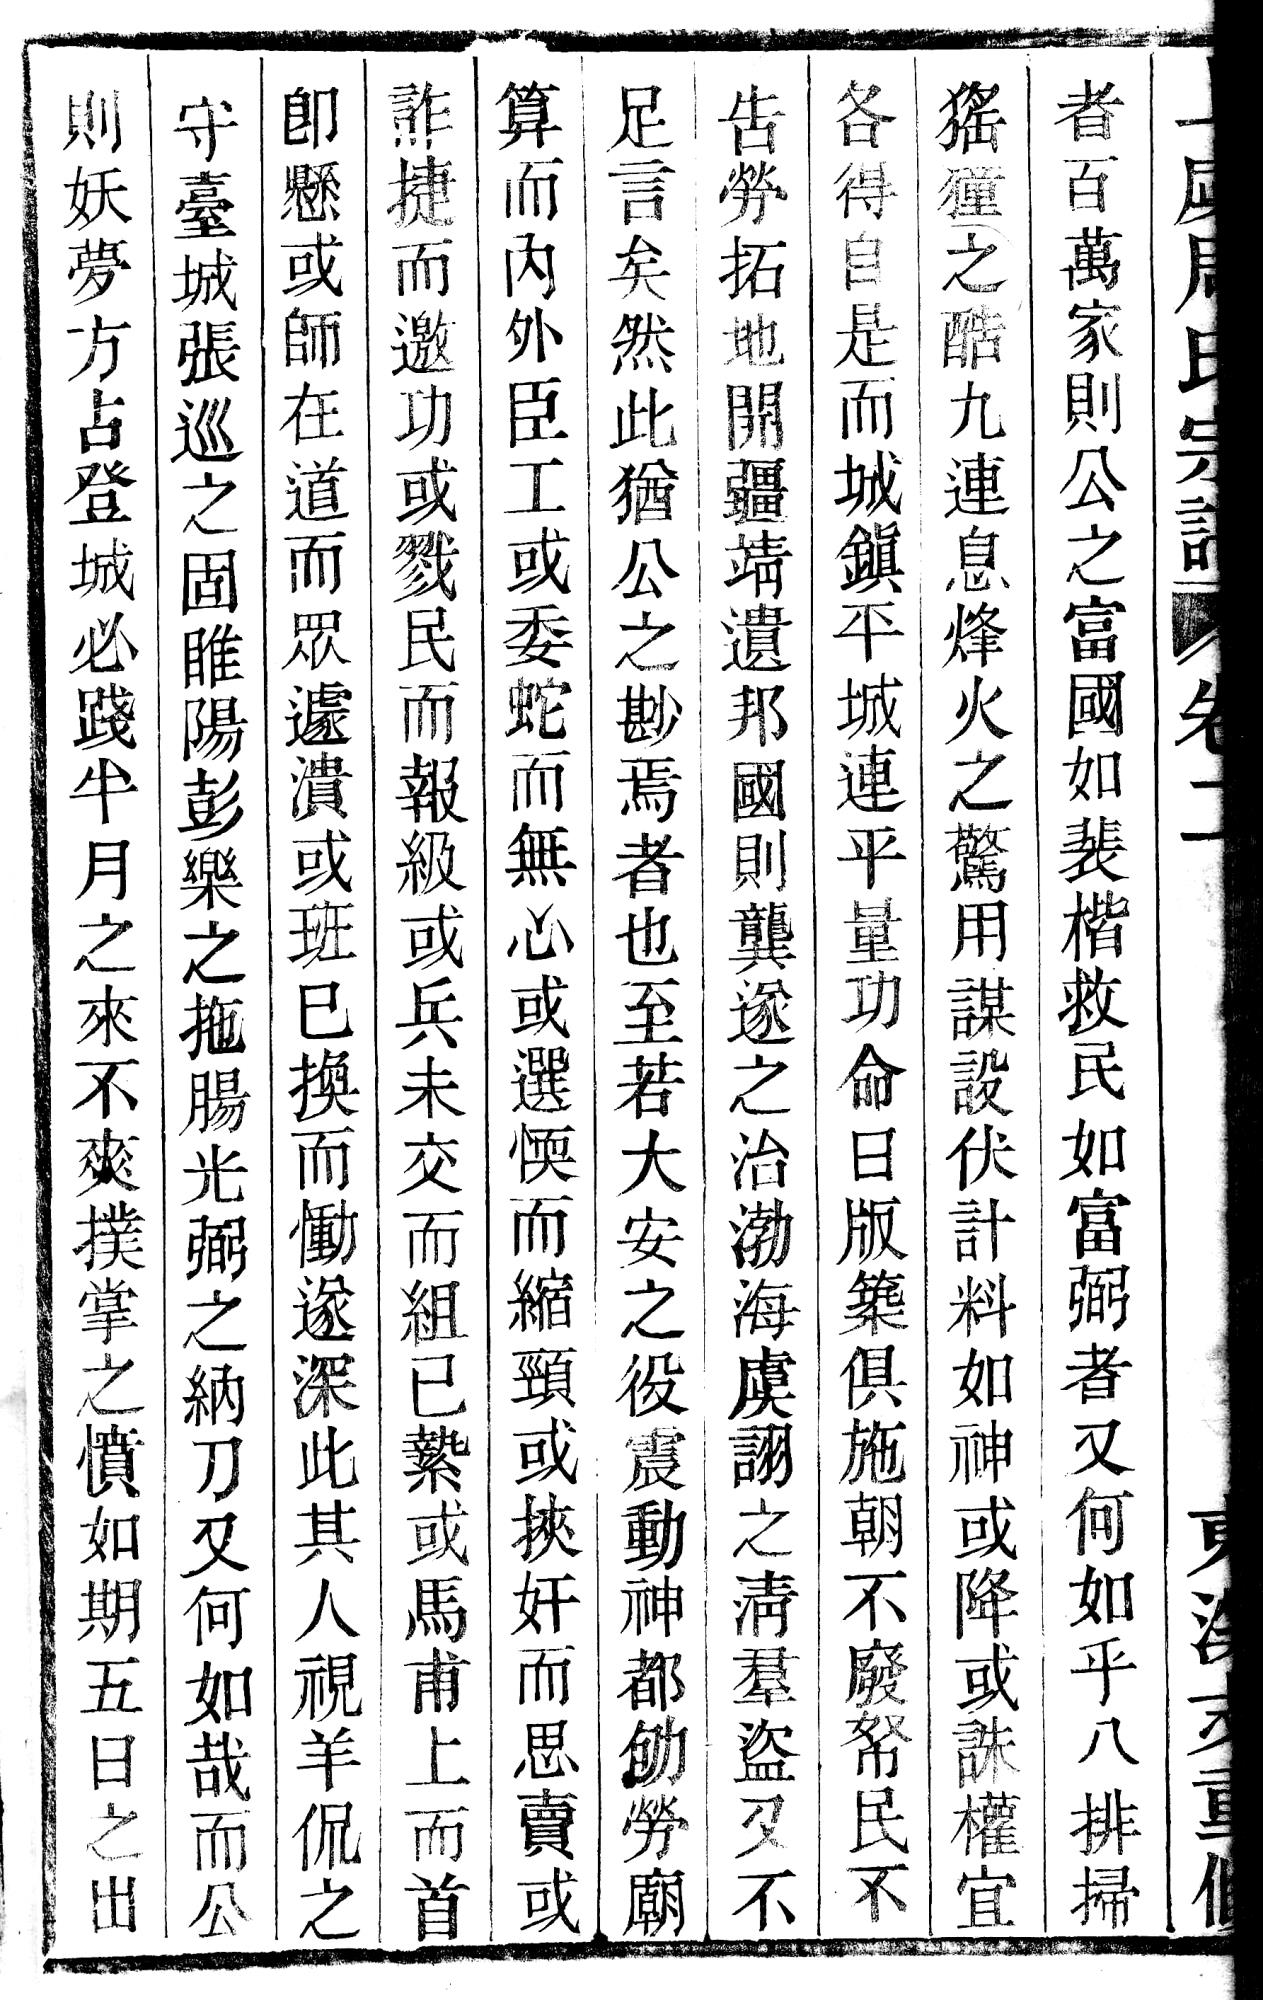 周氏宗譜 卷二
者百萬家則公之富國如裴楷救民如富弼者又何如乎八排掃
猺獞之酷九連息烽火之驚用謀設伏計料如神或降或誅權宜
各得自是而城鎮平城連平量功命日版築俱施朝不廢帑民不
告勞拓地開疆靖遺邦國則龔遂之治渤海虞詡之淸羣盜又不
足言矣然此猶公之尠焉者也至若大安之役震動神都劬勞廟
算而內外臣工或委蛇而無心或選愞而縮頸或挾奸而思賣或
詐捷而邀功或戮民而報級或兵未交而組已縶或馬甫上而首
卽懸或師在道而眾遽潰或班已換而慟遂深此其人視羊侃之
守臺城張巡之固睢陽彭樂之拖腸光弼之納刀又何如哉而公
則妖夢方占登城必踐半月之來不爽撲掌之憤如期五日之出